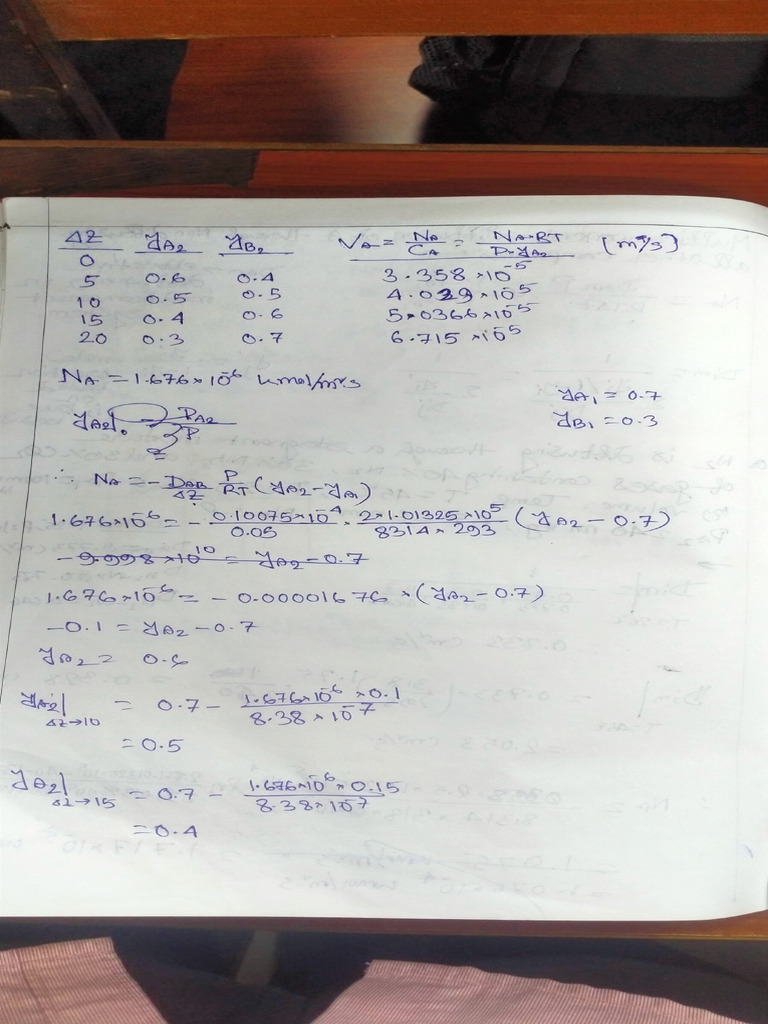 ΔZ yA2 yB2 VA = NA/CA = NA×RT/P×yA2 (m/s)
0
5 0.6 0.4 3.358×10^-5
10 0.5 0.5 4.029×10^-5
15 0.4 0.6 5.0366×10^-5
20 0.3 0.7 6.715×10^-5
NA = 1.676×10^-6 kmol/m²s
yA1 = 0.7
yA2|0 PA2/P
yB1 = 0.3
∴ NA = -DAB/ΔZ P/RT (yA2-yA1)
1.676×10^-6 = - 0.10075×10^-4/0.05 × 2×1.01325×10^5/8314×293 (yA2 - 0.7)
-9.998×10^10 = yA2-0.7
1.676×10^-6 = - 0.00001676 × (yA2-0.7)
-0.1 = yA2-0.7
yA2 = 0.6
yA2|ΔZ→10 = 0.7 - 1.676×10^-6 × 0.1/8.38×10^-7
= 0.5
yA2|ΔZ→15 = 0.7 - 1.676×10^-6 × 0.15/8.38×10^-7
= 0.4